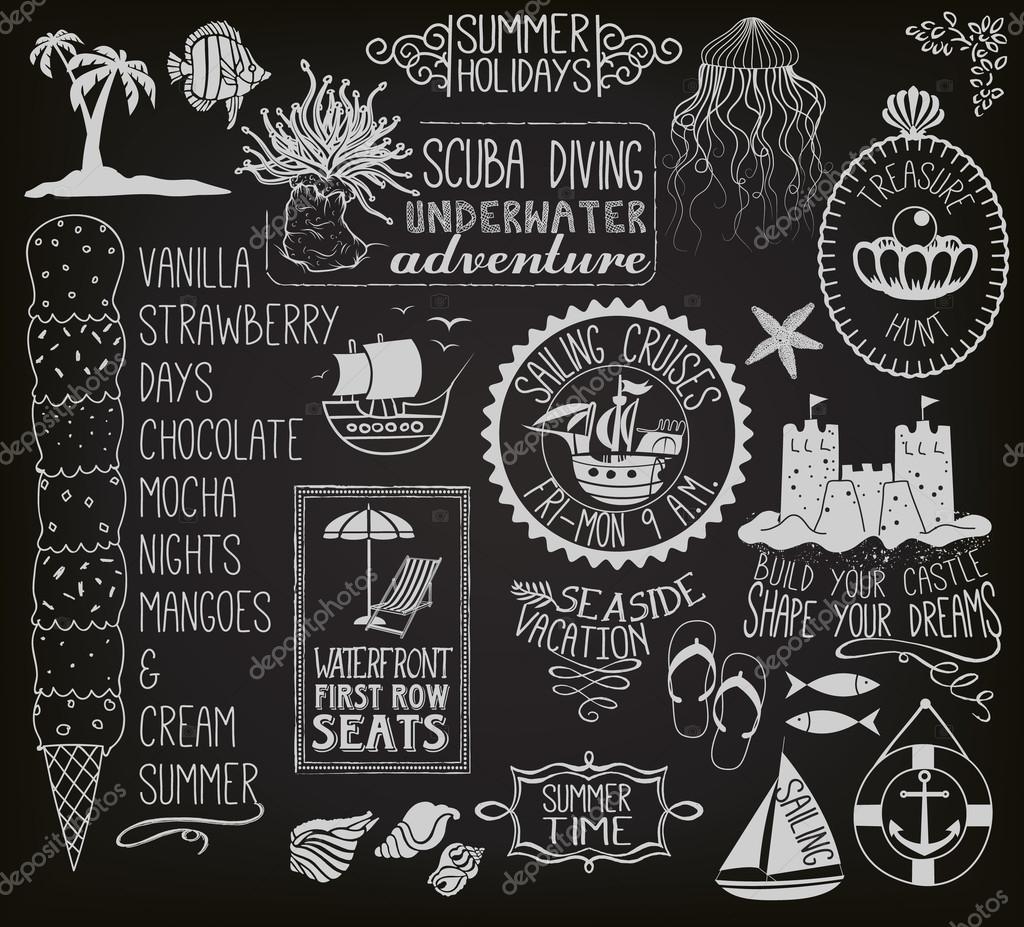 SUMMER
HOLIDAYS
SCUBA DIVING
UNDERWATER
adventure
TREASURE
HUNT
VANILLA
STRAWBERRY
DAYS
CHOCOLATE
MOCHA
NIGHTS
MANGOES
&
CREAM
SUMMER
SAILING CRUISES
FRI-MON 9 A.M.
BUILD YOUR CASTLE
SHAPE YOUR DREAMS
SEASIDE
VACATION
WATERFRONT
FIRST ROW
SEATS
SUMMER
TIME
SAILING
depositphotos